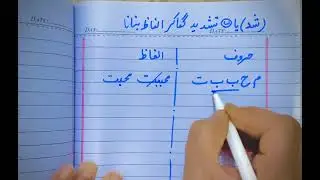 (شد) یا ّ تشدید لگا کر الفاظ بنانا
DATE: DATE:
حروف الفاظ
م ح ب ب ت محببت محبت